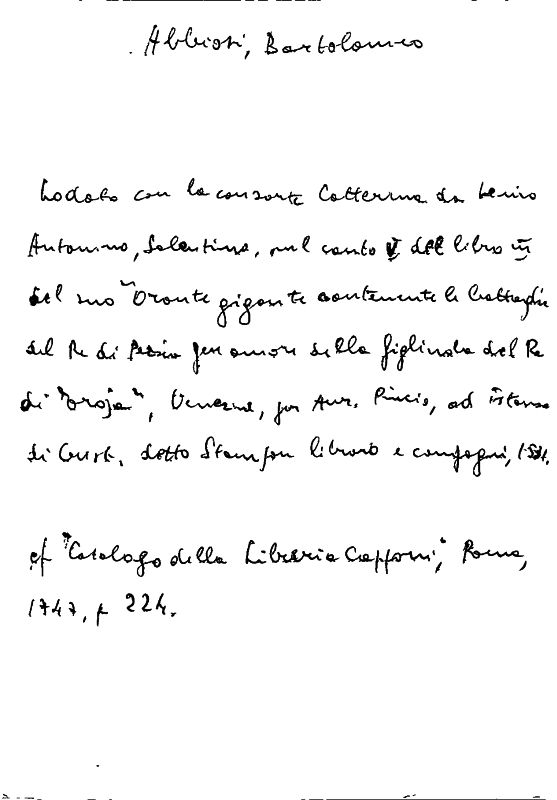 Abbiosi, Bartolomeo
Lodato con la consorte Catterina da Lenio
Antonino, Salentino, nel canto V del libro III
del suo "Oronte gigante contenente le battaglie
del Re di Persia per amore della figliuola del Re
di Troja", Venezia, per Aur. Pincio, ad istanza
di Crist. detto Stampon libraro e compagni, 1531.
cf "Catalogo della Libreria Capponi", Roma,
1747, p 224.